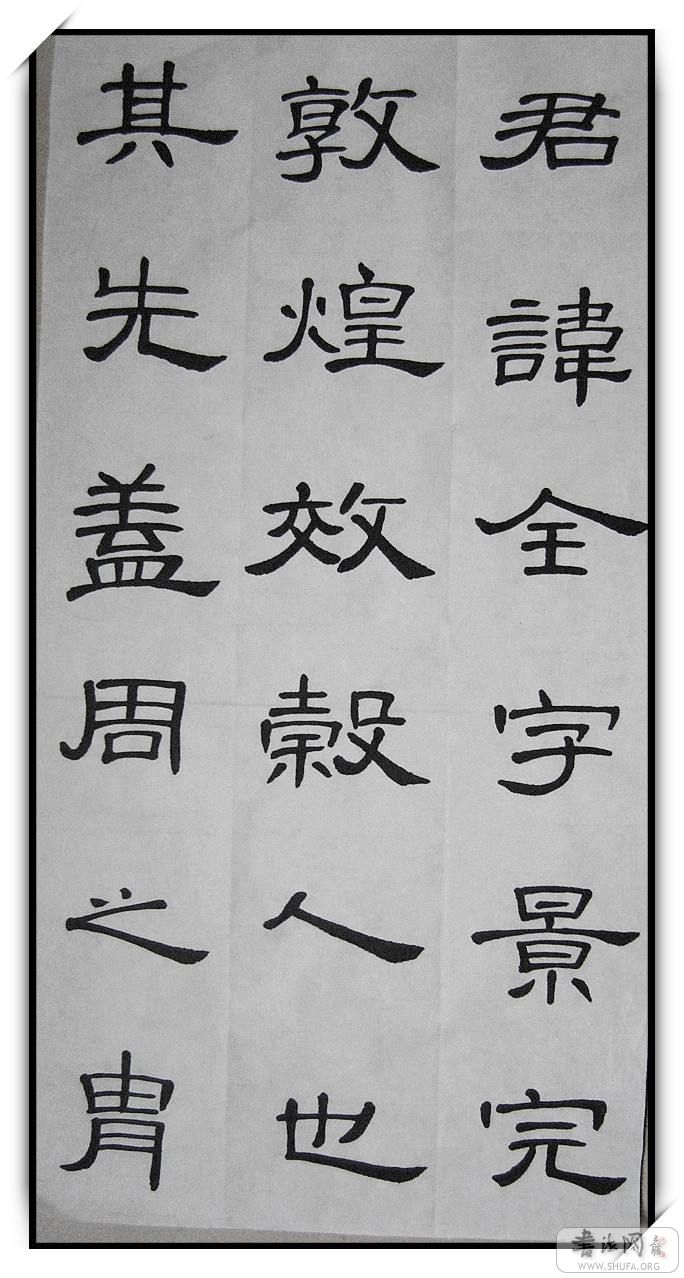 君諱全字景完
敦煌效穀人也
其先蓋周之胄
書法网
WWW.SHUFA.ORG